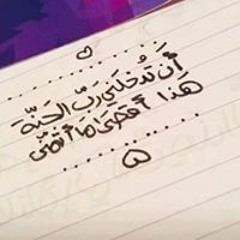 أَن تُدخلَني رَبِّ الجَنَّة
هَذا أقصَى مَا أتمَنَّى